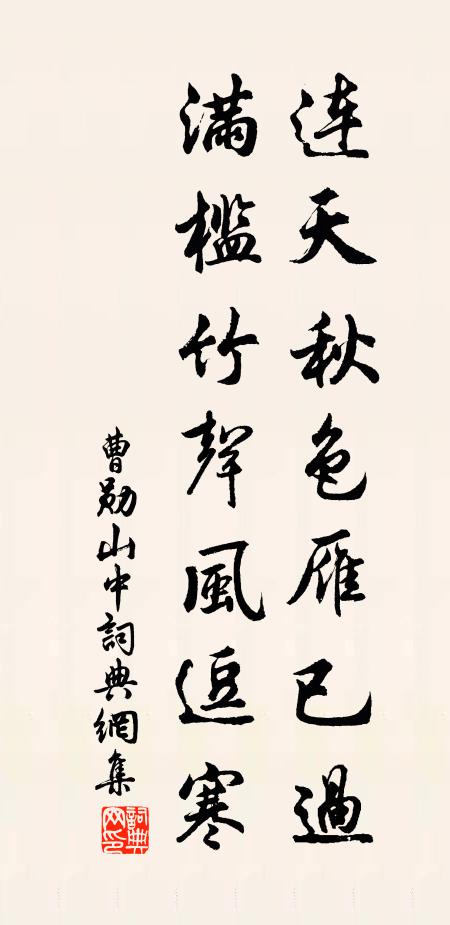 連天秋色雁已過
滿檻竹聲風逗寒
曹勛山中詞典網集
詞典網印